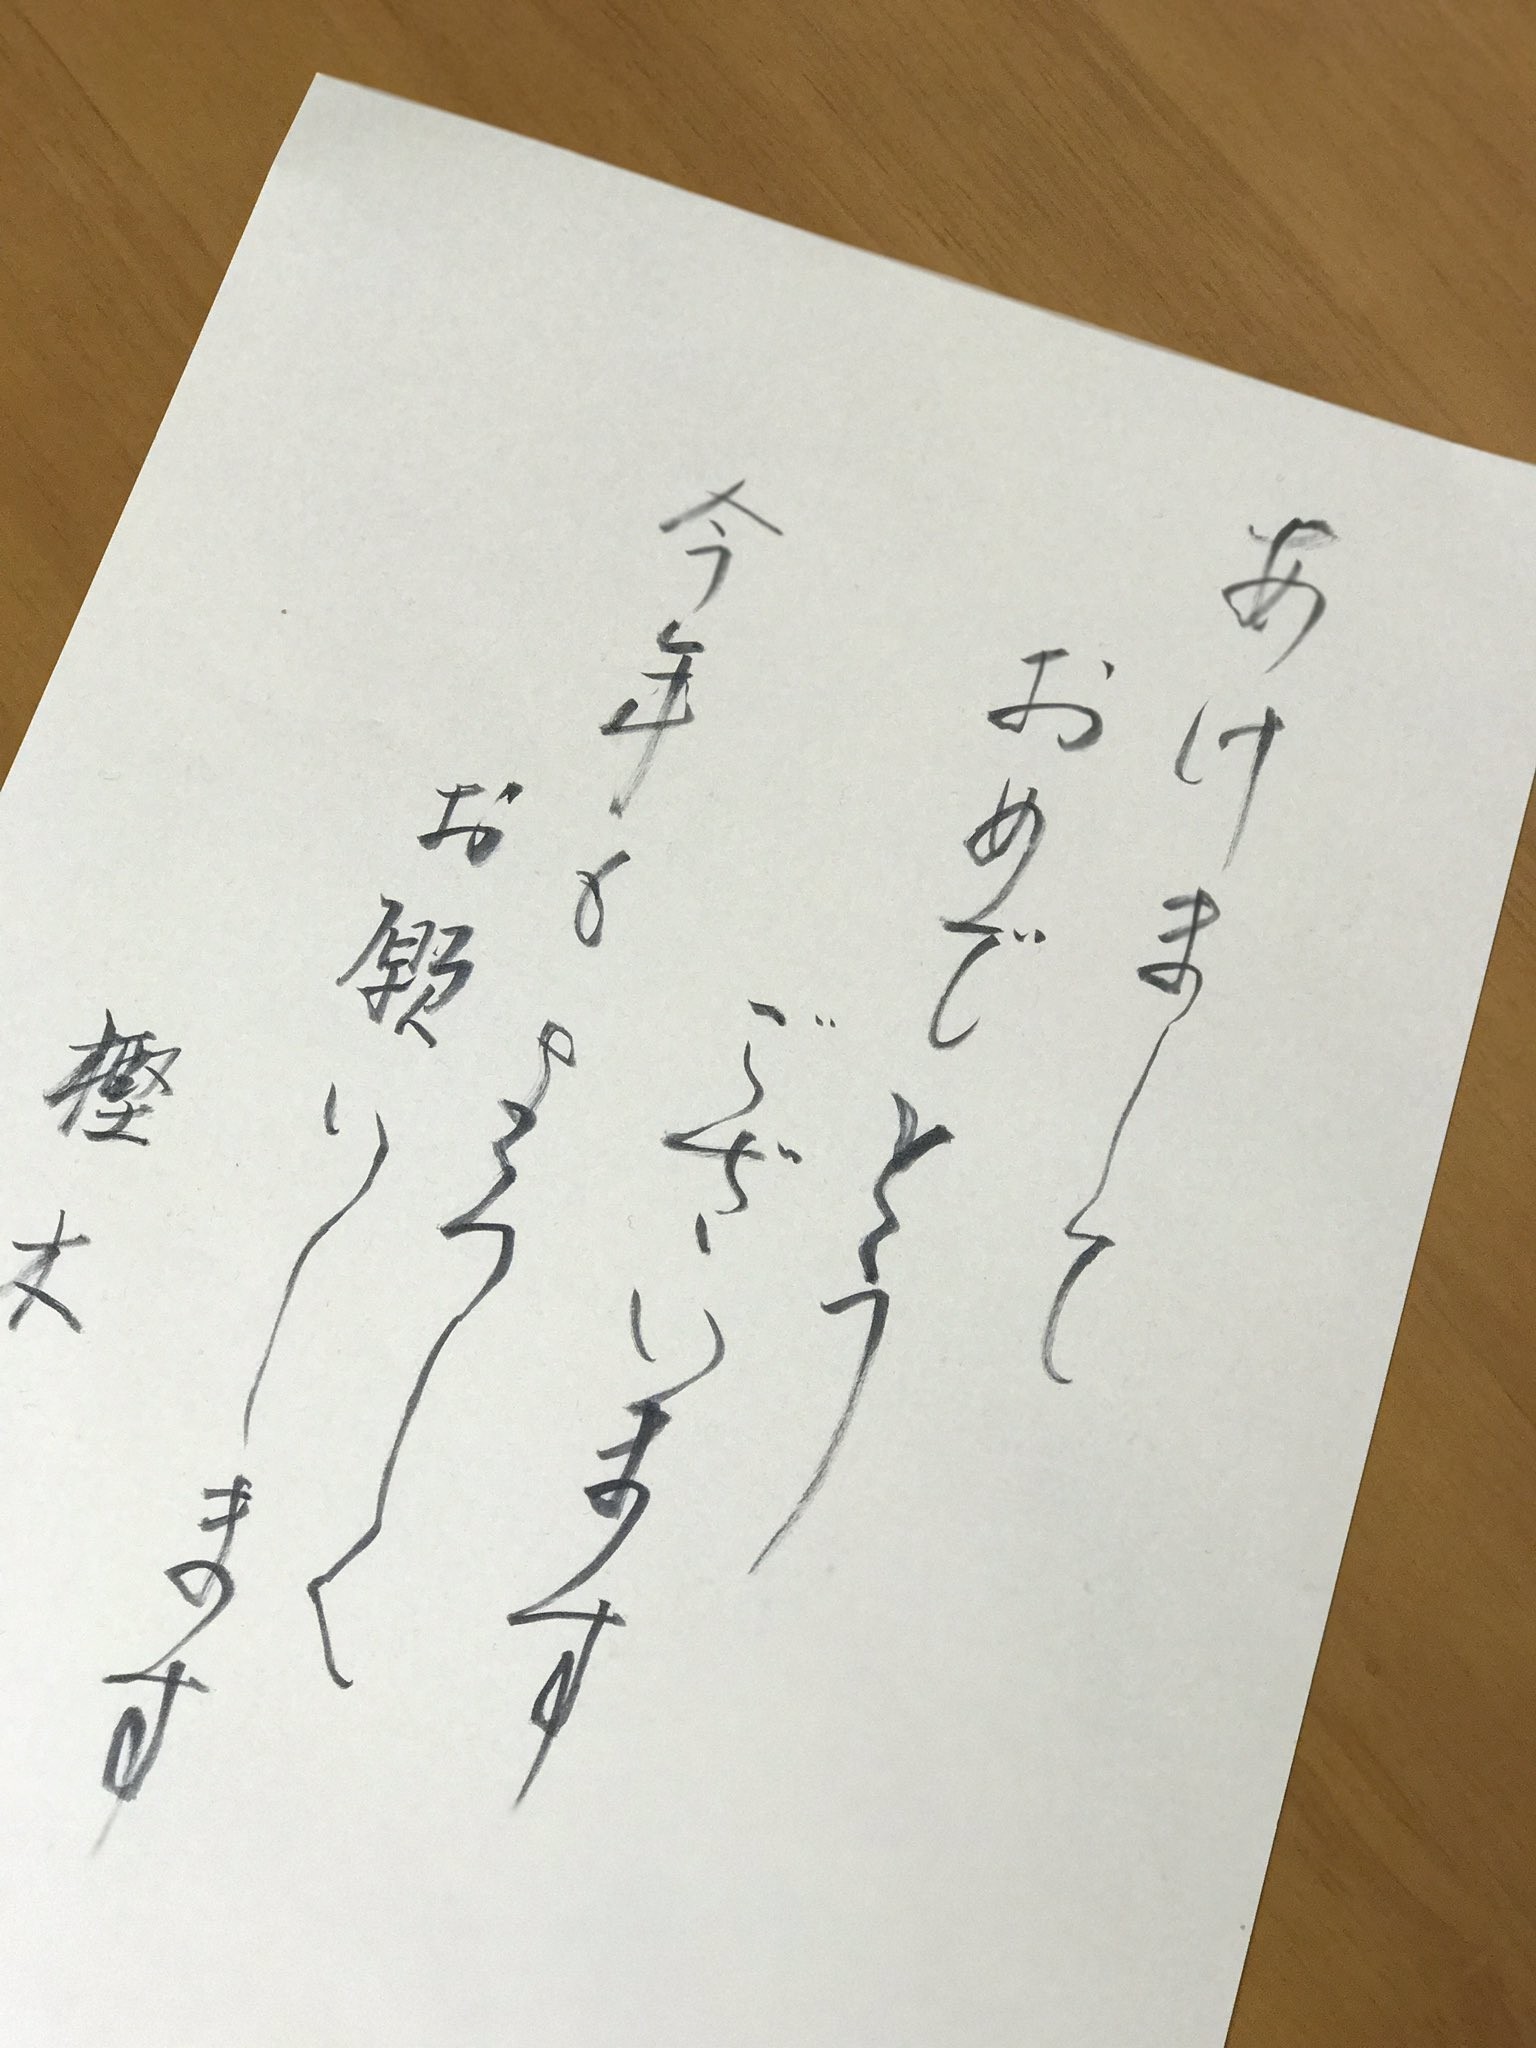 あけまして
おめでとう
ございます
今年もよろしく
お願いします